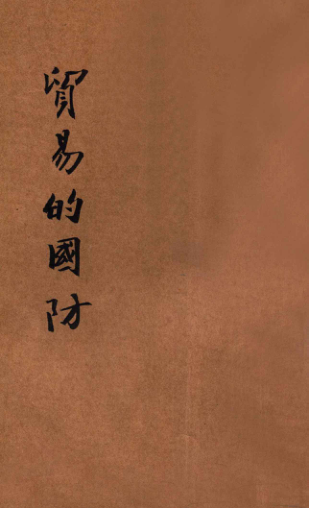 貿易的國防